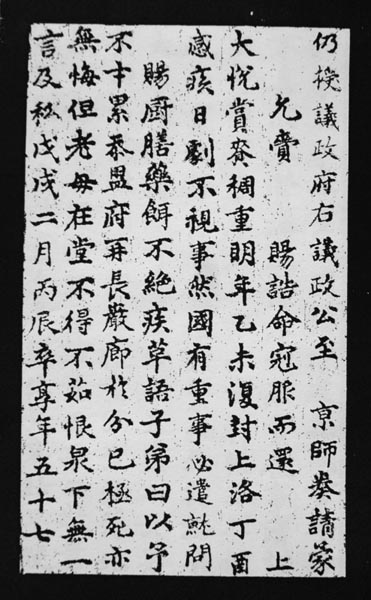 仍授議政府右議政公至 京師奏請蒙
允賚 賜誥命冠服而還 上
大悅賞賚稠重明年乙未復封上洛丁酉
感疾日劇不視事然國有重事必遣就問
賜厨膳藥餌不絶疾草語子弟曰以予
不才累忝盟府再長嚴廊於分已極死亦
無悔但老母在堂不得不茹恨泉下無一
言及私戊戌二月丙辰卒享年五十七